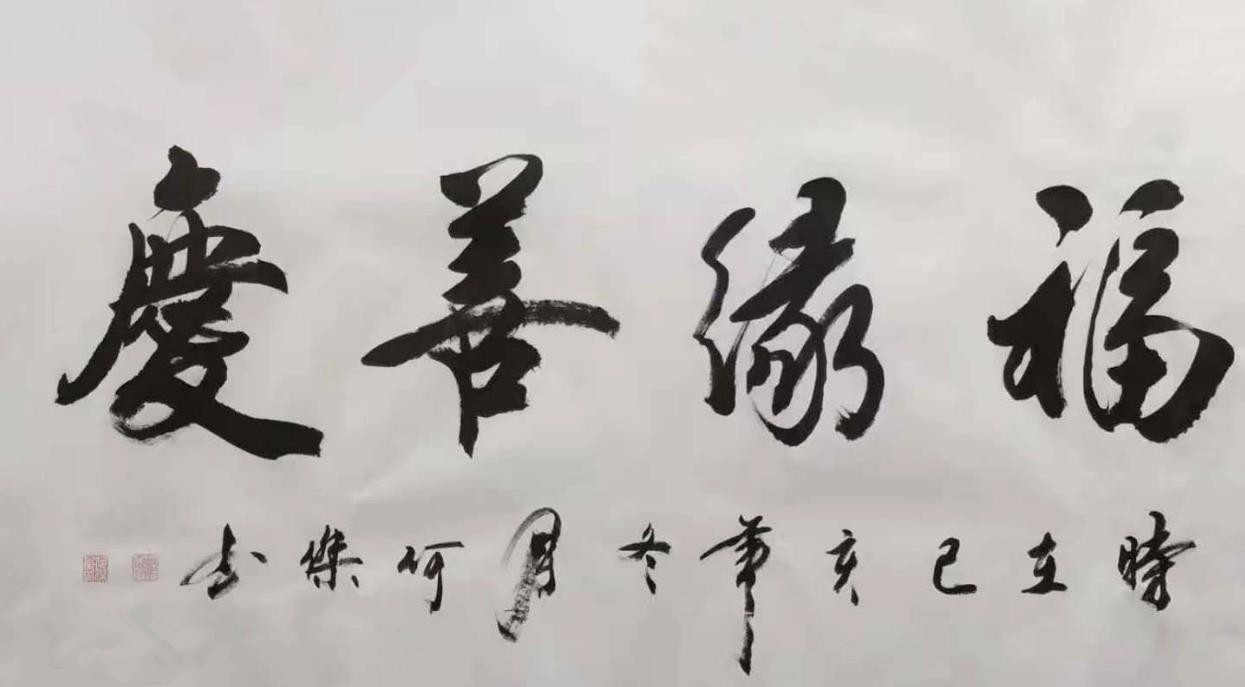 福缘善慶
時在己亥年冬月何傑书